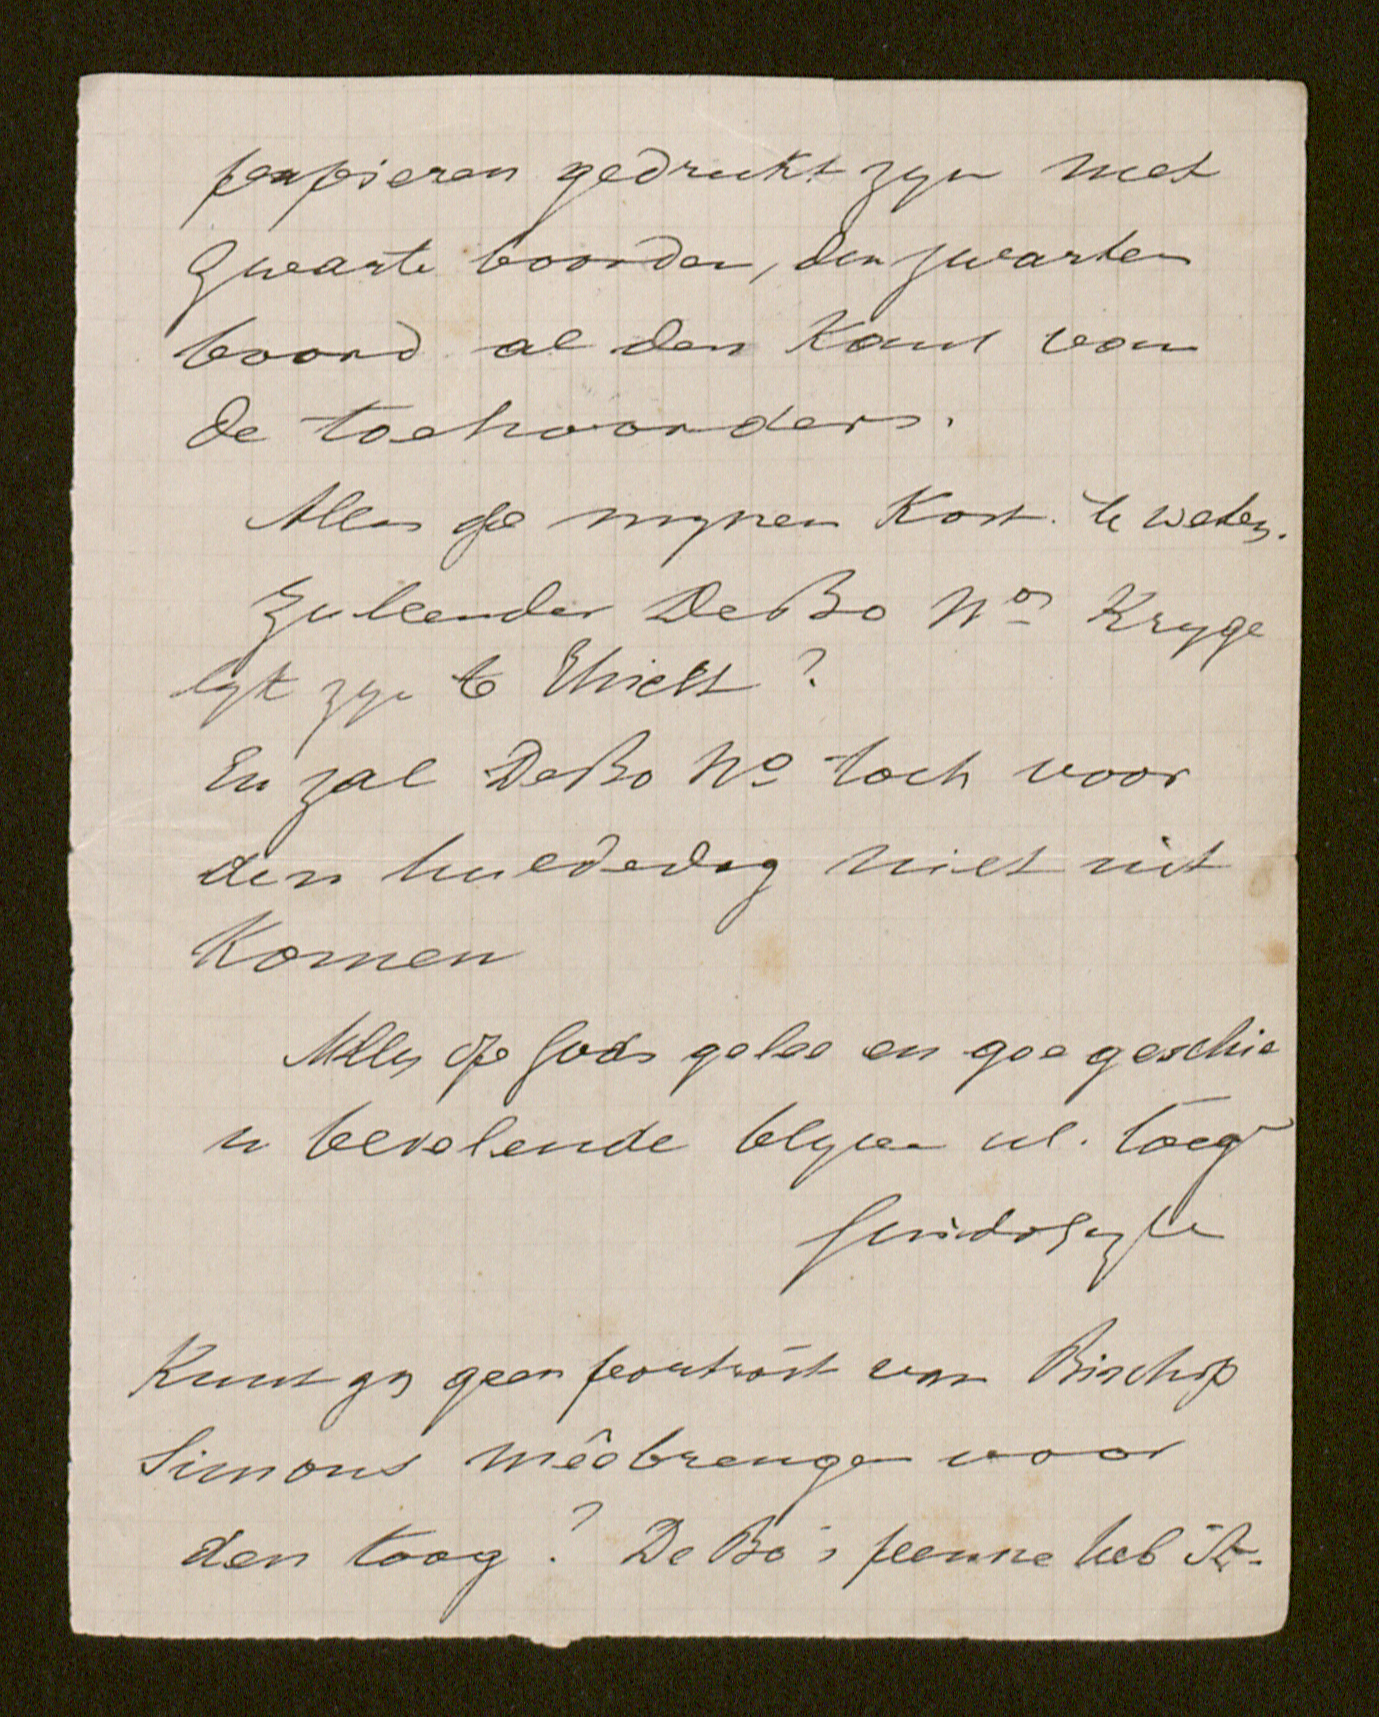 papieren gedrukt zyn met
zwarte boorden, den zwarten
boord al den kant van
de toehoorders.
Alles op mynen kost. te weten.
Zullender DeBo Nos kryge
lyk zyn te Thielt?
En zal DeBo No toch voor
den huldedag niet uit
komen
Alles op Gods gelee en goe geschie
u bevelende blyve ul. toeg
Guido Gezelle
Kunt gy geen portrait van Bisschop
Simons mêebrengen voor
den toog? DeBo's penne heb ik.